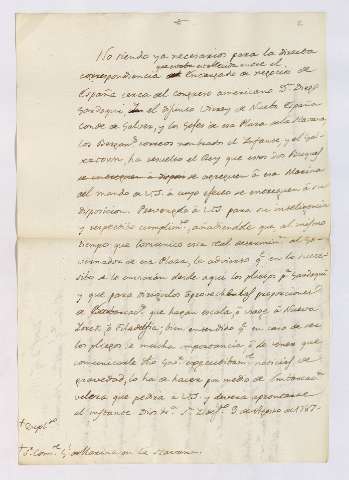 No siendo ya necesarios para la directa
que estaba establecida entre el
correspondiencia Encargado de negocios de
España cerca del congreso americano Dn. Diego
Gardoqui el difunto Virrey de Nueva España
Conde de Galvez, y los Gefes de esa Plaza de la Havana
los Bergan.s correos nombrados el Infante, y el Gal-
veztown, ha resuelto el Rey que estos dos Buques
se entreguen a dispos se agreguen à esa Marina
del mando de V.S. à cuyo efecto se entreguen à su
disposicion. Prevengolo à V.S. para su inteligencia
y respectibo cumplim.to añadiendole que al mismo
tiempo que comunico esta real determin.n al Go-
vernador de esa Plaza, le advierto q.e en lo succe-
sibo se le enviarán desde aqui los pliegos p.a Gardoqui
y que para dirigirlos aproveche las proporciones
de Embarcac.s que hagan escala, ò viage à Nueva
Yorck, ò Filadelfia; bien entendido q.e en caso de ser
los pliegos de mucha importancia ò de tener que
comunicarle ese Gov.r noticias de
gravedad, lo ha de hacer por medio de Embarcac.n
velera que pedirà à V.S. y deverá aprontarse
al instante. Dios &.a Sn. Ildef.o 3 de Agosto de 1787.
+ Dupl.do
+ S.r Com.te G.l de Marina en la Havana.